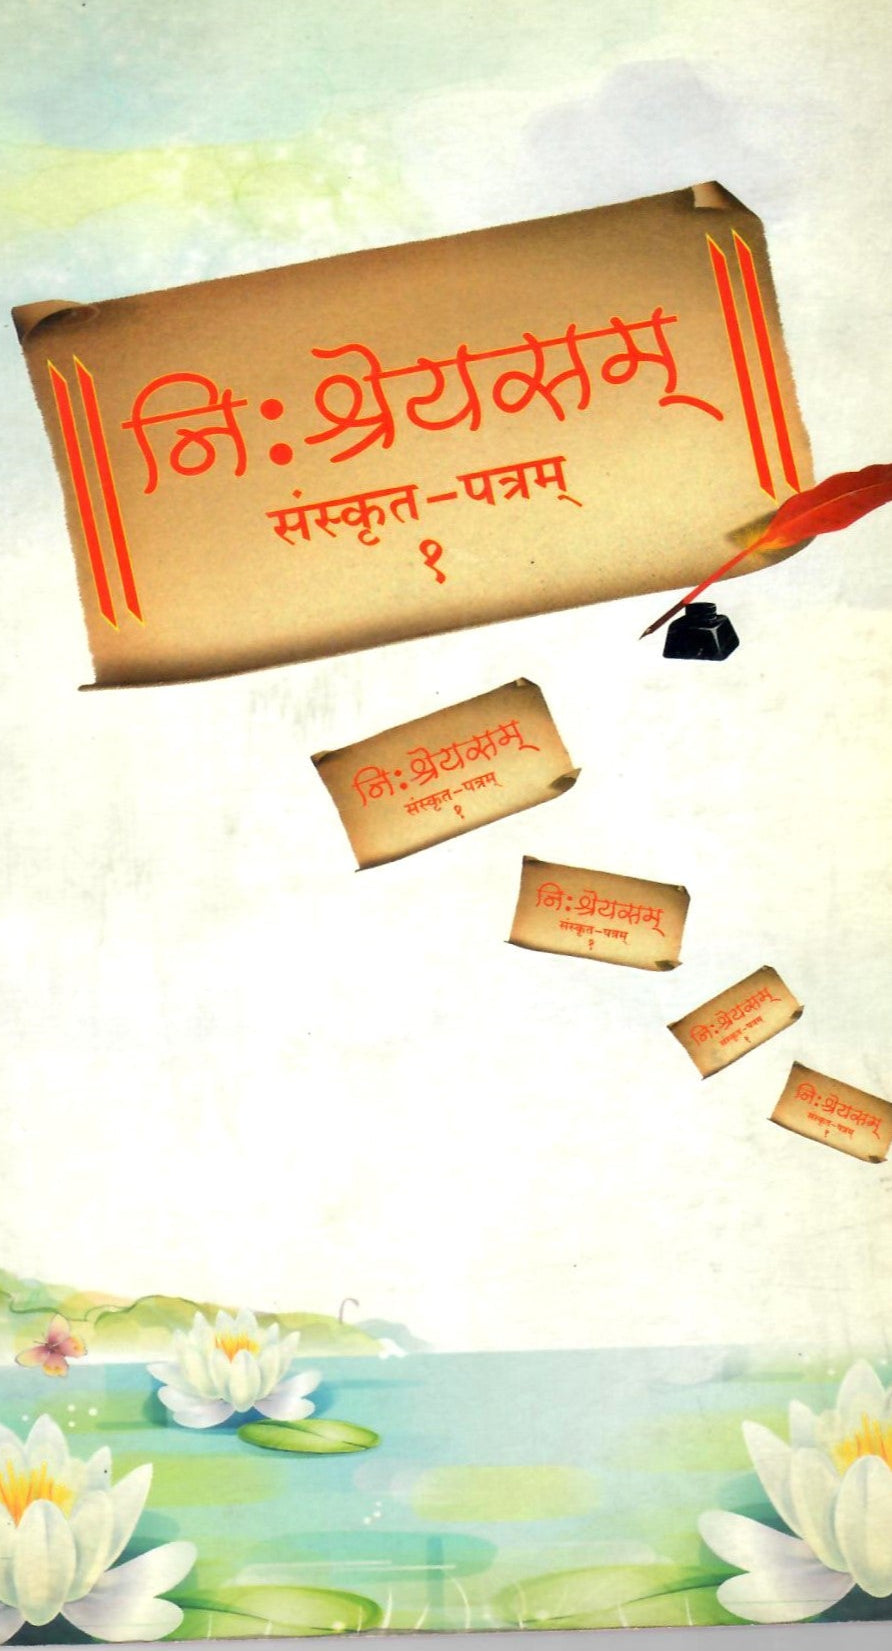 ॥ निःश्रेयसम् ॥
संस्कृत-पत्रम्
१
निःश्रेयसम्
संस्कृत-पत्रम्
१
निःश्रेयसम्
संस्कृत-पत्रम्
१
निःश्रेयसम्
संस्कृत-पत्रम्
१
निःश्रेयसम्
संस्कृत-पत्रम्
१